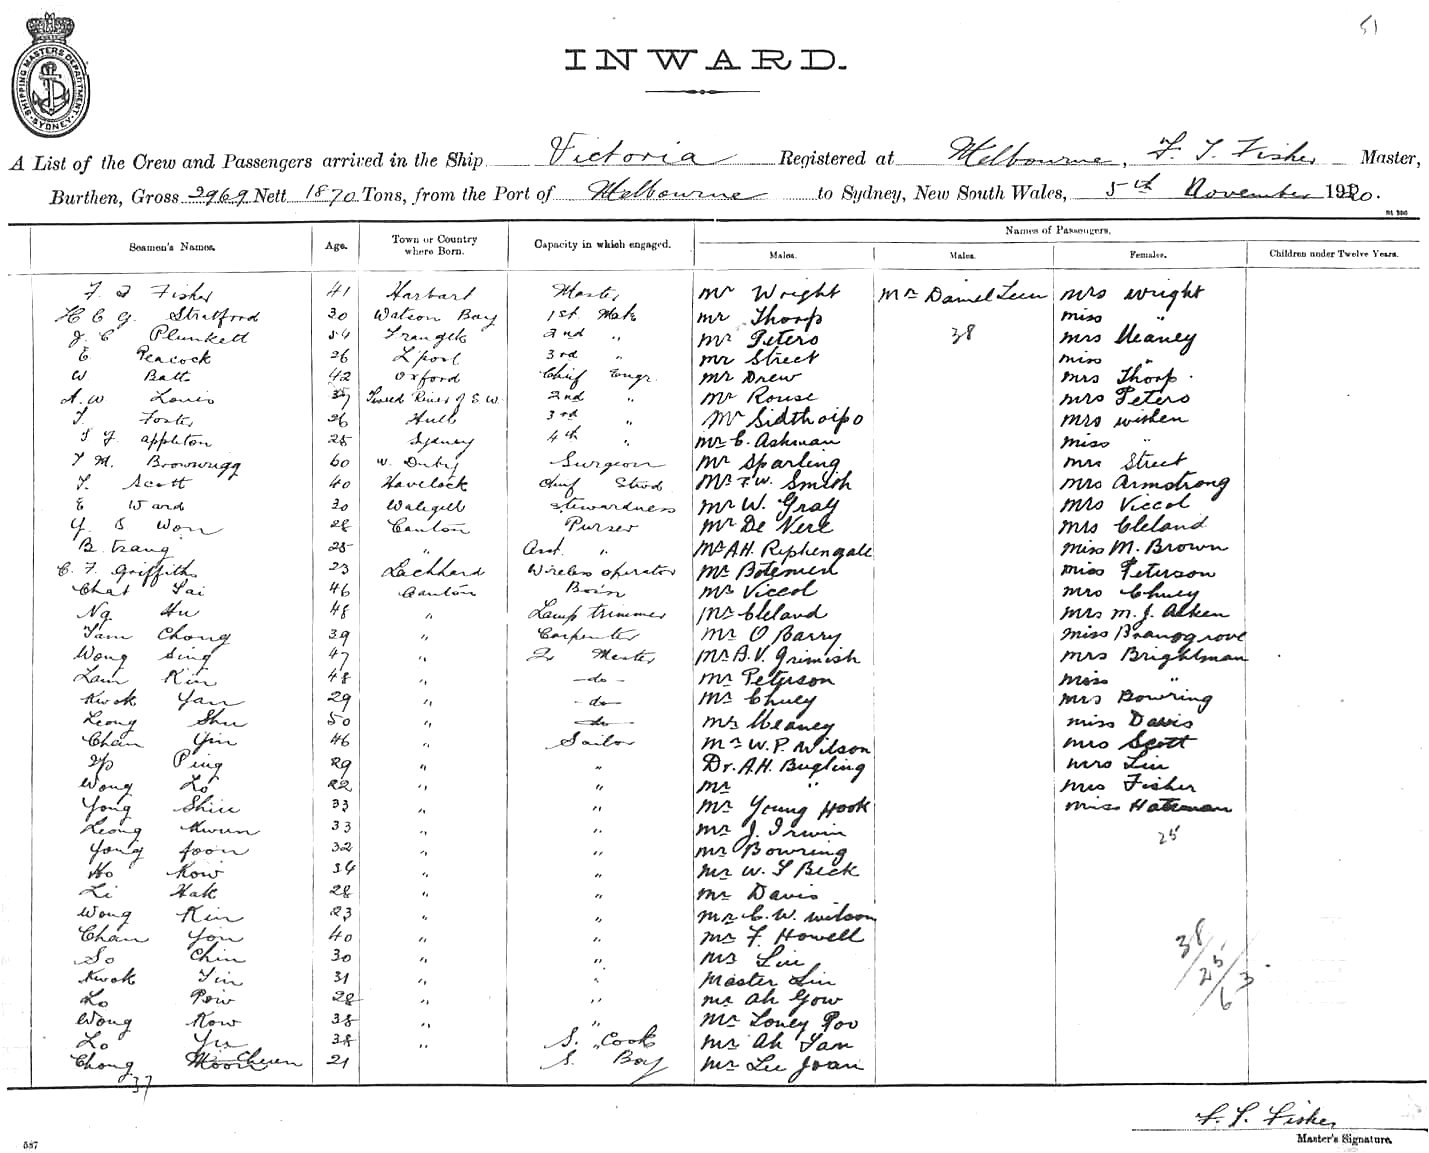 51
SHIPPING MASTERS DEPARTMENT SYDNEY
INWARD.
A List of the Crew and Passengers arrived in the Ship Victoria Registered at Melbourne, F. T. Fisher Master,
Burthen, Gross 2969 Nett 1870 Tons, from the Port of Melbourne to Sydney, New South Wales, 5th November 1920.
Names of Passengers.
Seamen's Names. Age. Town or Country where Born. Capacity in which engaged. Males. Males. Females. Children under Twelve Years.
F T Fisher 41 Master Mr Wright Mr Mrs Wright
H C G Stratford 30 Watson Bay 1st Mate Mr Thorp Miss "
J. C Plunkett 54 2nd " Mr Peters 38 Mrs Meaney
E Peacock 26 L'pool 3rd " Mr Street Miss "
W Batt 42 Oxford Chief Engr. Mr Drew Mrs Thorp.
A. W 2nd " Mr Rouse Mrs Peters
T. Foster 26 Hull 3rd " Mr Mrs
T F Appleton 25 Sydney 4th " Mr C. Ashman Miss "
T M. Brownrigg 60 W. Surgeon Mr Sparling Mrs Street
T. Scott 40 Havelock Chief Stwd Mr F. W. Smith Mrs Armstrong
E Ward 30 Stewardness Mr W. Gray Mrs Viccol
Y S Won 28 Canton Purser Mr De Mrs Cleland
B. Trang 25 " Asst. " Mr A.H. Miss M. Brown
C. F. Griffiths 23 Wireless operator Mr Miss Peterson
Chat Tai 46 Canton Bos'n Mr Viccol Mrs Chuey
Ng Hu 48 " Lamp trimmer Mr Cleland Mrs M. J. Aitken
Tam Chong 39 " Carpenter Mr O Barry Miss
Wong Sing 47 " Qr Master Mr B. V. Grimish Mrs Brightman
Lam Kin 48 " -do- Mr Peterson Miss "
Kwok Yan 29 " -do- Mr Chuey Mrs Bowring
Leong Shu 50 " -do- Mr Meaney Miss Davis
Chan Yin 46 " Sailor Mr W. P. Wilson Mrs Scott
Yp Ping 29 " " Dr. A.H. Bugling Mrs Liu
Wong Lo 22 " " Mr " Mrs Fisher
Yong Shiu 33 " " Mr Young Hook Miss
Leong Kwun 33 " " Mr J. Irwin
Yong Foon 32 " " Mr Bowring 25
Ho Kow 34 " " Mr W. S Beck
Li Hak 28 " " Mr Davis
Wong Kin 23 " " Mr C. W. Wilson
Chan Yon 40 " " Mr F. Howell
So Chin 30 " " Mr Liu 38/25/63
Kwok Tin 31 " " Master Liu
Lo Pow 28 " " Mr Ah Gow
Wong Kow 38 " " Mr Loney Poo
Lo Yu 38 " S. Cook Mr Ah San
Chong Cheun 21 S. Boy Mr Lee Joan
37
F. T. Fisher
Master's Signature.
587